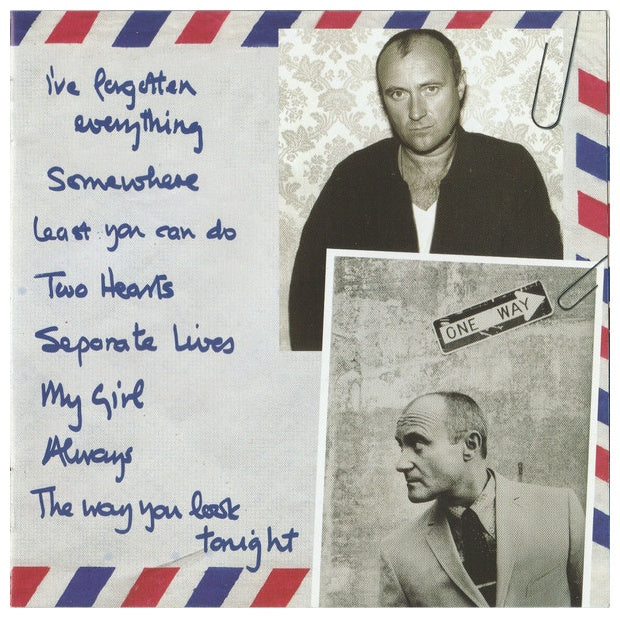 I've forgotten
everything
Somewhere
Least you can do
Two Hearts
Separate Lives
My Girl
Always
The way you look
tonight
ONE WAY